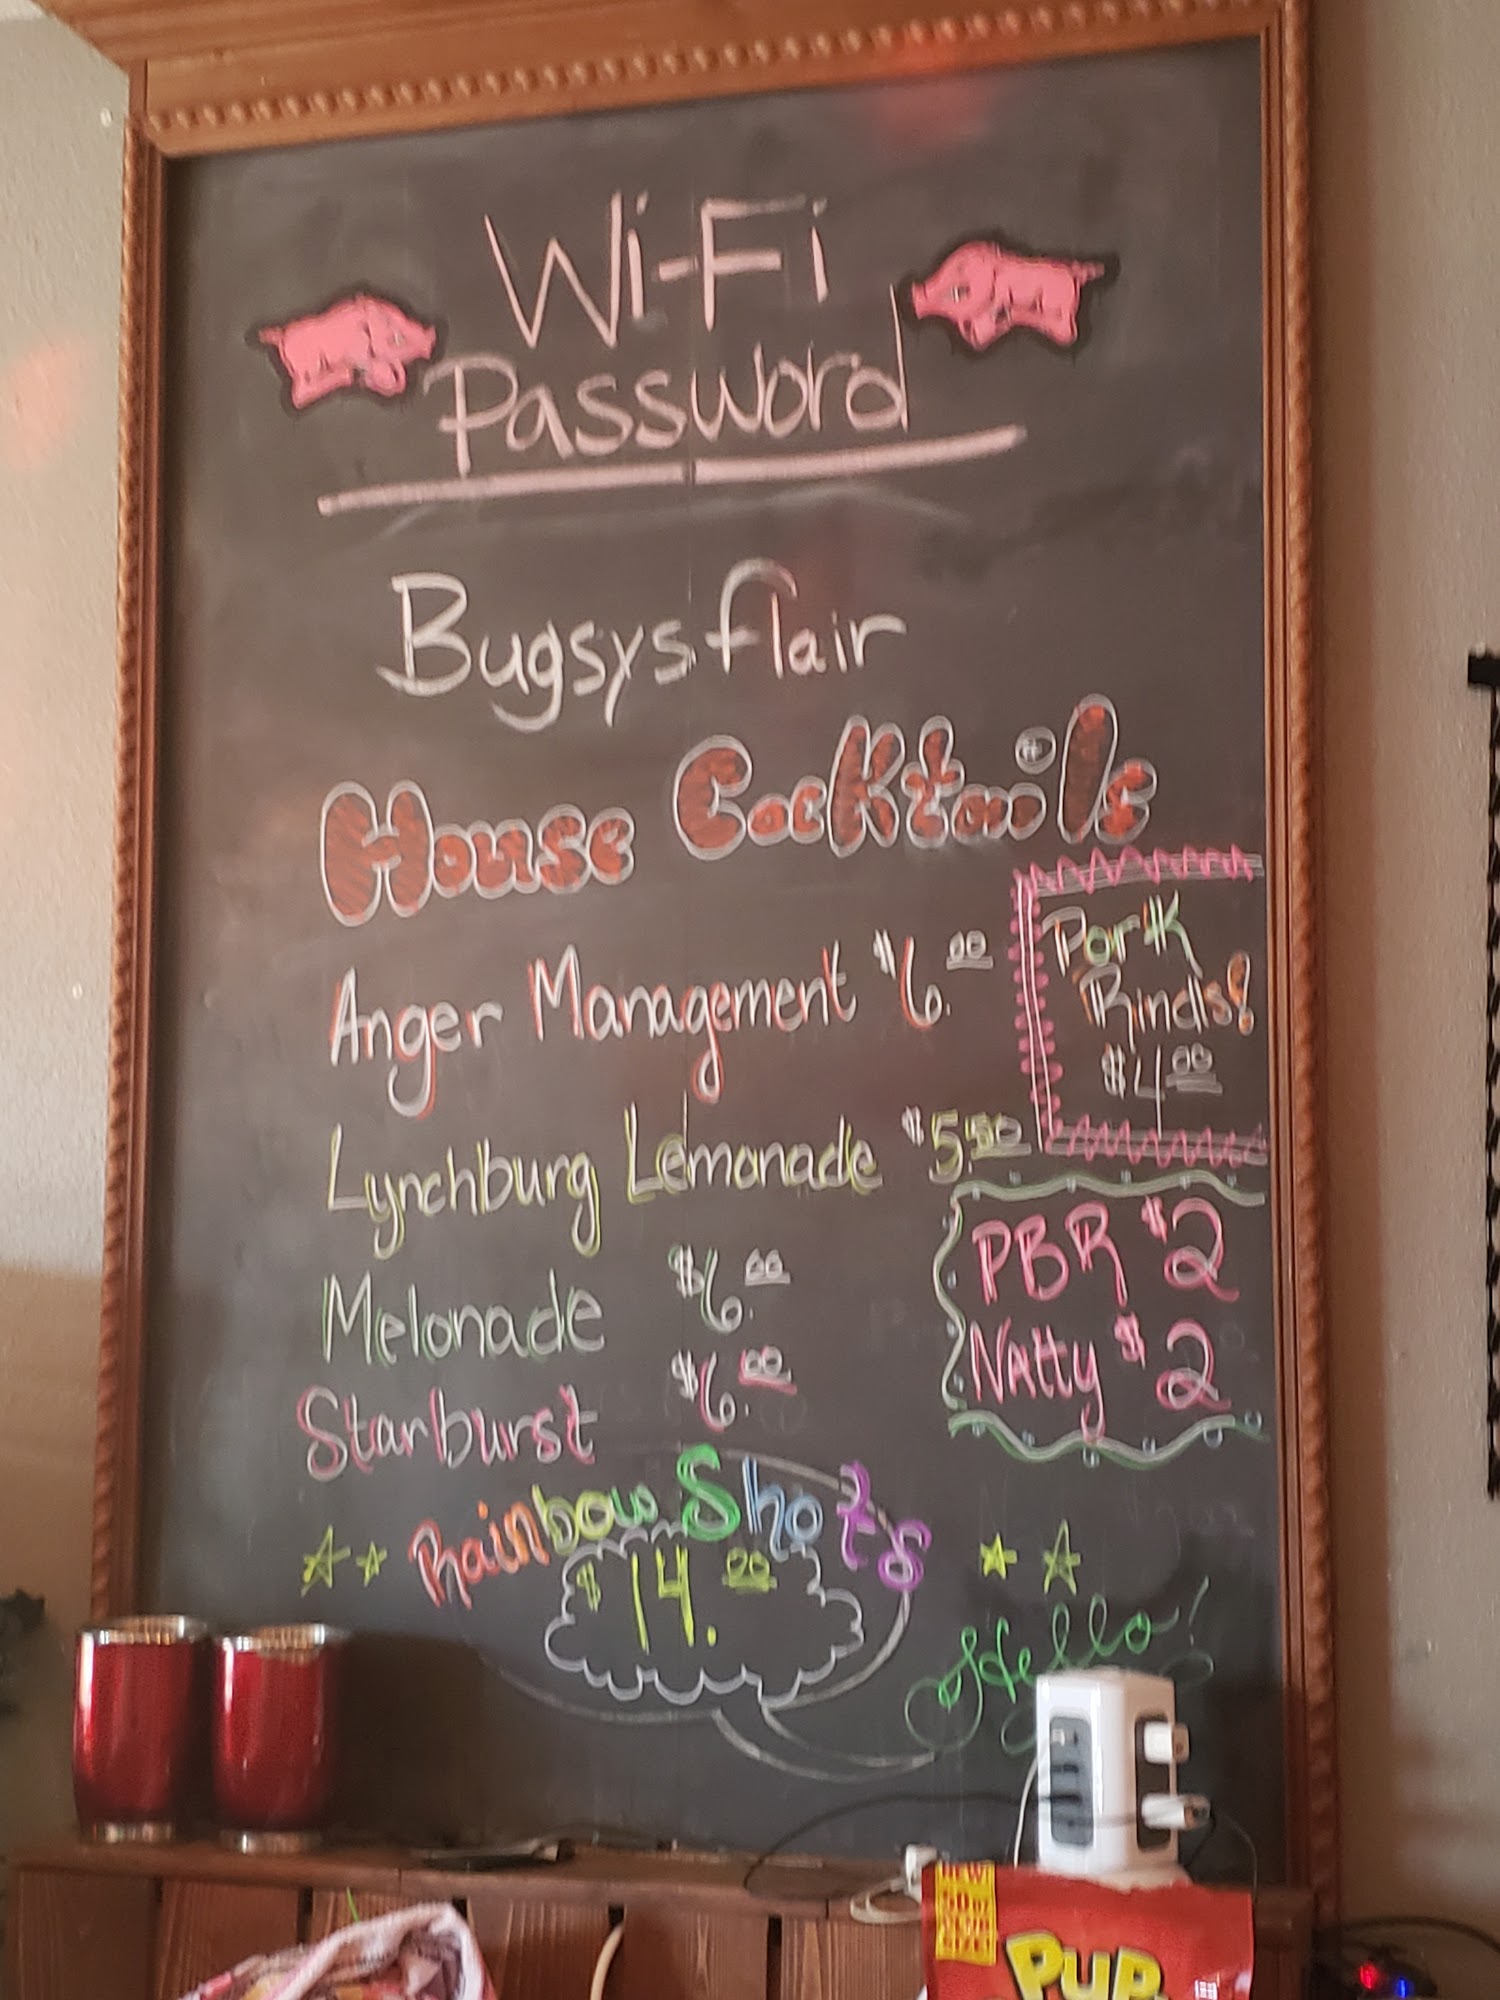 Wi-Fi
Password
Bugsysflair
House Cocktails
Anger Management $6.00
Pork
Rinds!
$4.00
Lynchburg Lemonade $5.50
Melonade $6.00
Starburst $6.00
PBR $2
Natty $2
Rainbow Shots
$14.00
Hello!
PUP